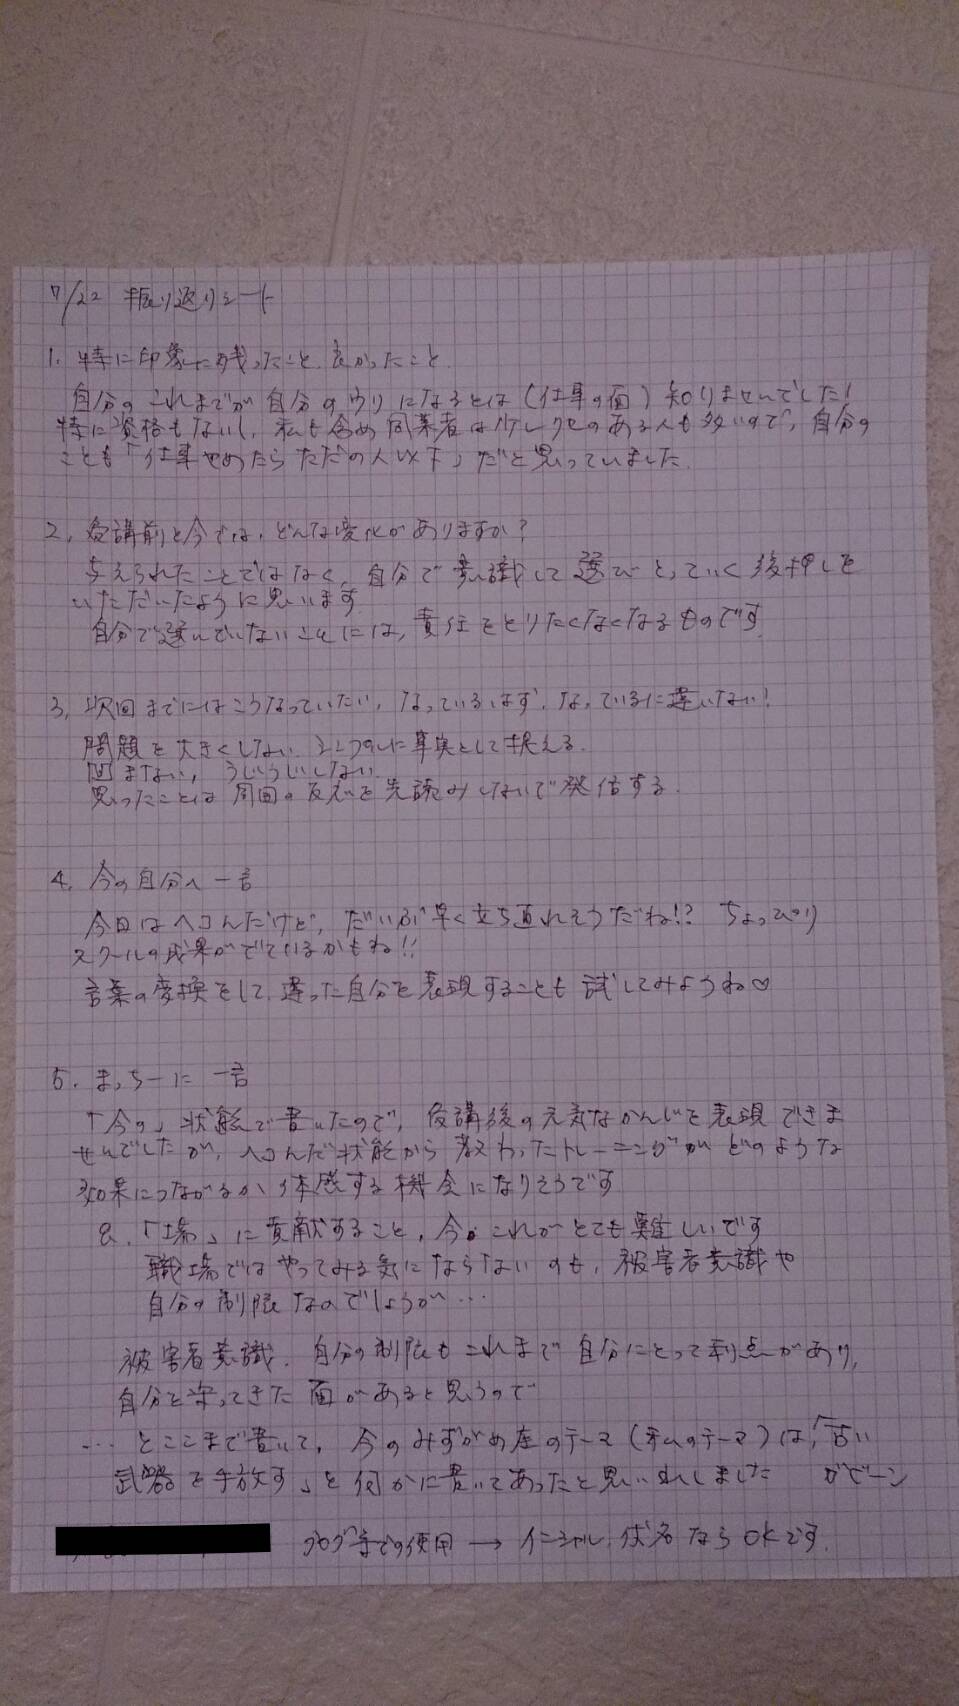 7/22 振り返りシート
1. 特に印象に残ったこと、良かったこと、
自分のこれまでが自分のウリになるとは(仕事の面)知りませんでした!
特に資格もないし、私も含め同業者は少しクセのある人も多いので、自分の
ことも「仕事やめたらただの人以下」だと思っていました。
2. 受講前と今では、どんな変化がありますか?
与えられたことではなく、自分で意識して選びとっていく後押しを
いただいたように思います
自分で選んでいないことには、責任をとりたくなくなるものです。
3. 次回までにはこうなっていたい、なっているはず、なっているに違いない!
問題を大きくしない、シンプルに事実として捉える。
凹まない、うじうじしない
思ったことは周囲の反応を先読みしないで発信する。
4. 今の自分へ一言
今日はヘコんだけど、だいぶ早く立ち直れそうだね!? ちょっぴり
スクールの成果がでているかもね!!
言葉の変換をして、違った自分を表現することも試してみようね♡
5. まっちーに一言
「今の」状態で書いたので、受講後の元気なかんじを表現できま
せんでしたが、ヘコんだ状態から教わったトレーニングがどのような
効果につながるか、体感する機会になりそうです
Q.「場」に貢献すること、今、これがとても難しいです
職場ではやってみる気にならないのも、被害者意識や
自分の制限なのでしょうが…
被害者意識、自分の制限もこれまで自分にとって利点があり、
自分を守ってきた面があると思うので
…とここまで書いて、今のみずがめ座のテーマ(私のテーマ)は、「古い
武器を手放す」と何かに書いてあったと思い出しました ガビーン
ブログ等での使用 → イニシャル、仮名ならOKです。